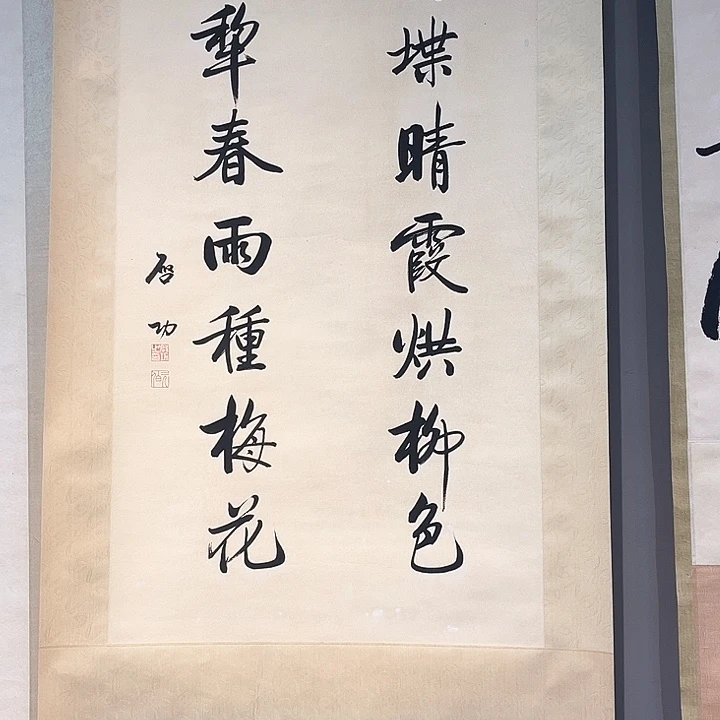 堞晴霞烘柳色
犁春雨種梅花
啓功